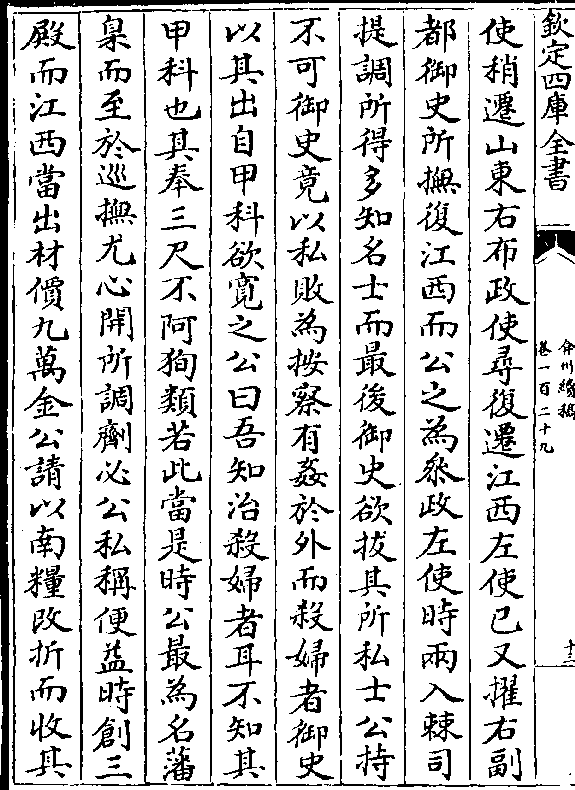 欽定四庫全書
弇州續稿
卷一百二十九
十三
使稍遷山東右布政使尋復遷江西左使已又擢右副
都御史所撫復江西而公之為叅政左使時兩入棘司
提調所得多知名士而最後御史欲拔其所私士公持
不可御史竟以私敗為按察有姦於外而殺婦者御史
以其出自甲科欲寛之公曰吾知治殺婦者耳不知其
甲科也其奉三尺不阿狥類若此當是時公最為名藩
臬而至於巡撫尤心開所調劑必公私稱便葢時創三
殿而江西當出材價九萬金公請以南糧改折而收其